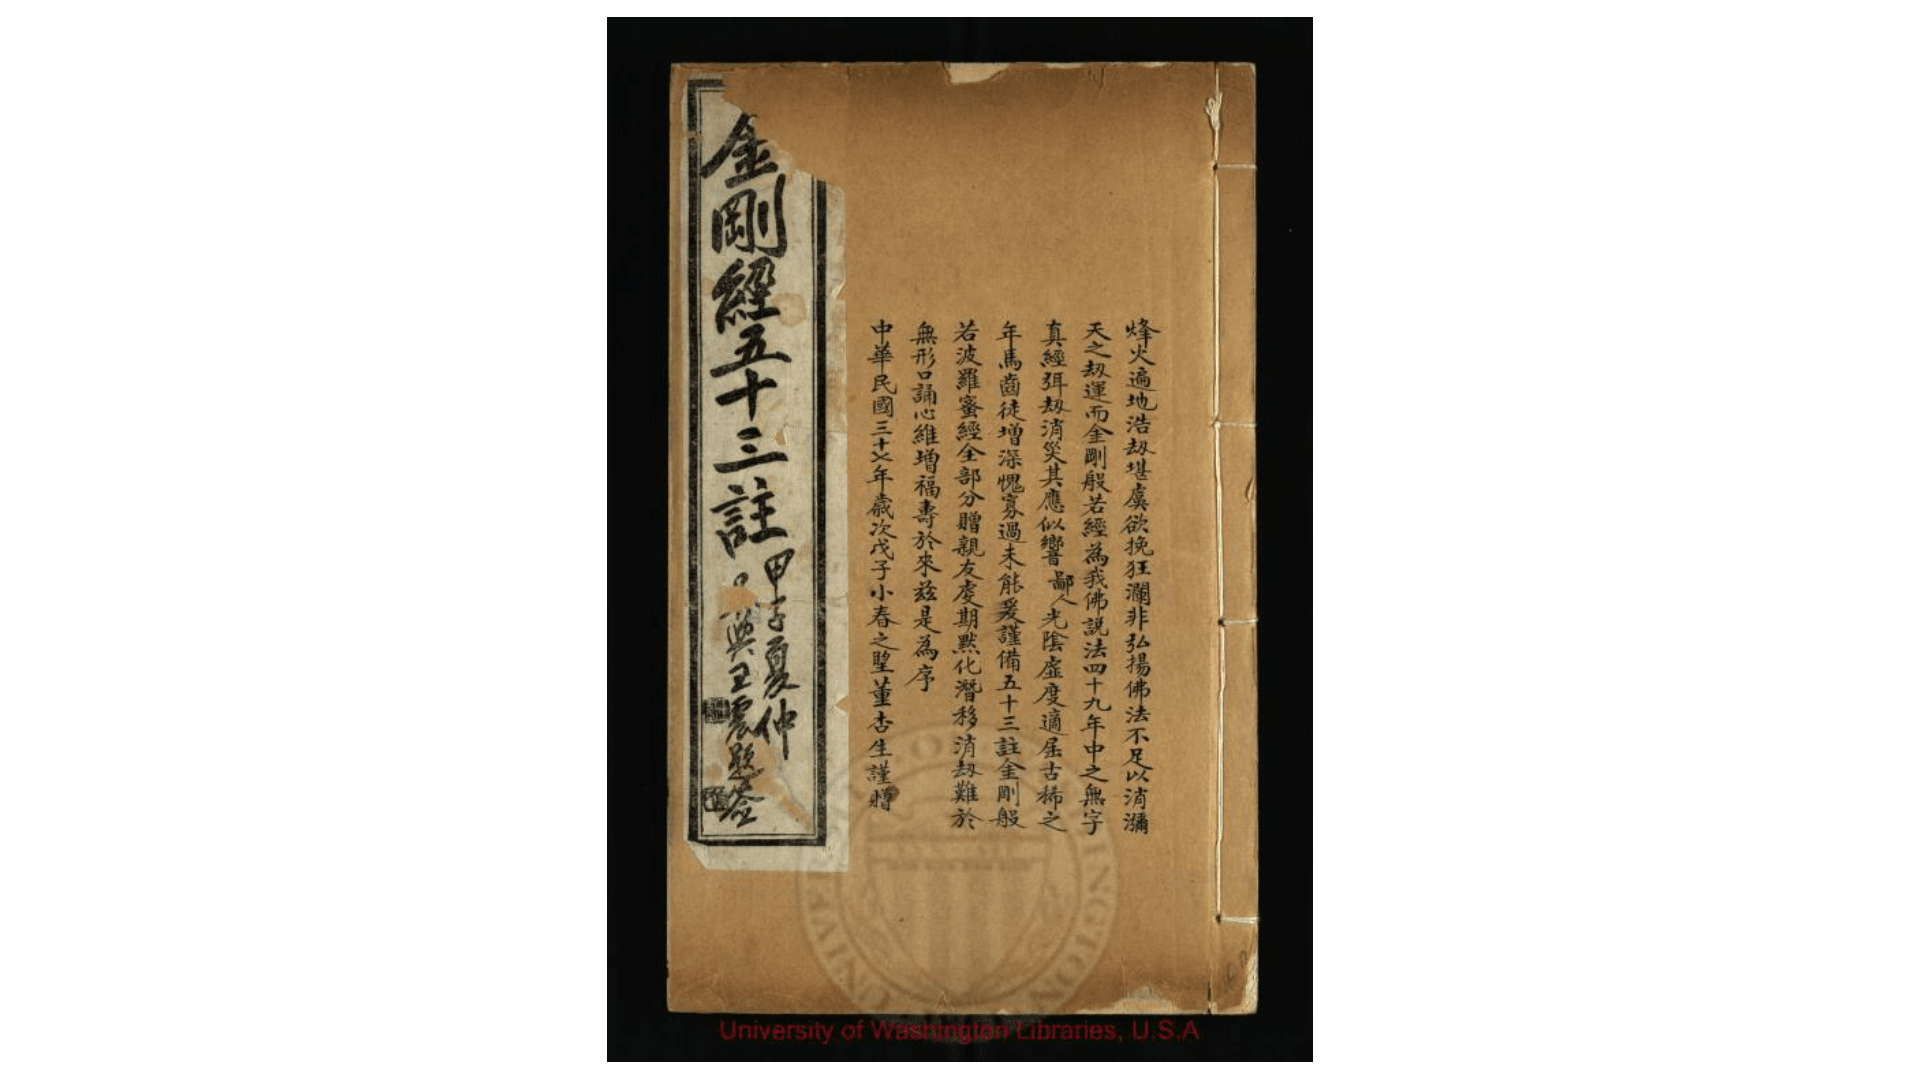 烽火遍地浩劫堪虞欲挽狂瀾非弘揚佛法不足以消瀰
天之劫運而金剛般若經為我佛説法四十九年中之無字
真經弭劫消災其應似響鄙人光陰虛度適屆古稀之
年馬齒徒增深愧寡過未能爰謹備五十三註金剛般
若波羅蜜經全部分贈親友虔期默化潛移消劫難於
無形口誦心維增福壽於來茲是為序
中華民國三十七年歲次戊子小春之望董杏生謹贈
金剛經五十三註
甲子夏仲
興王震題簽
University of Washington Libraries, U.S.A